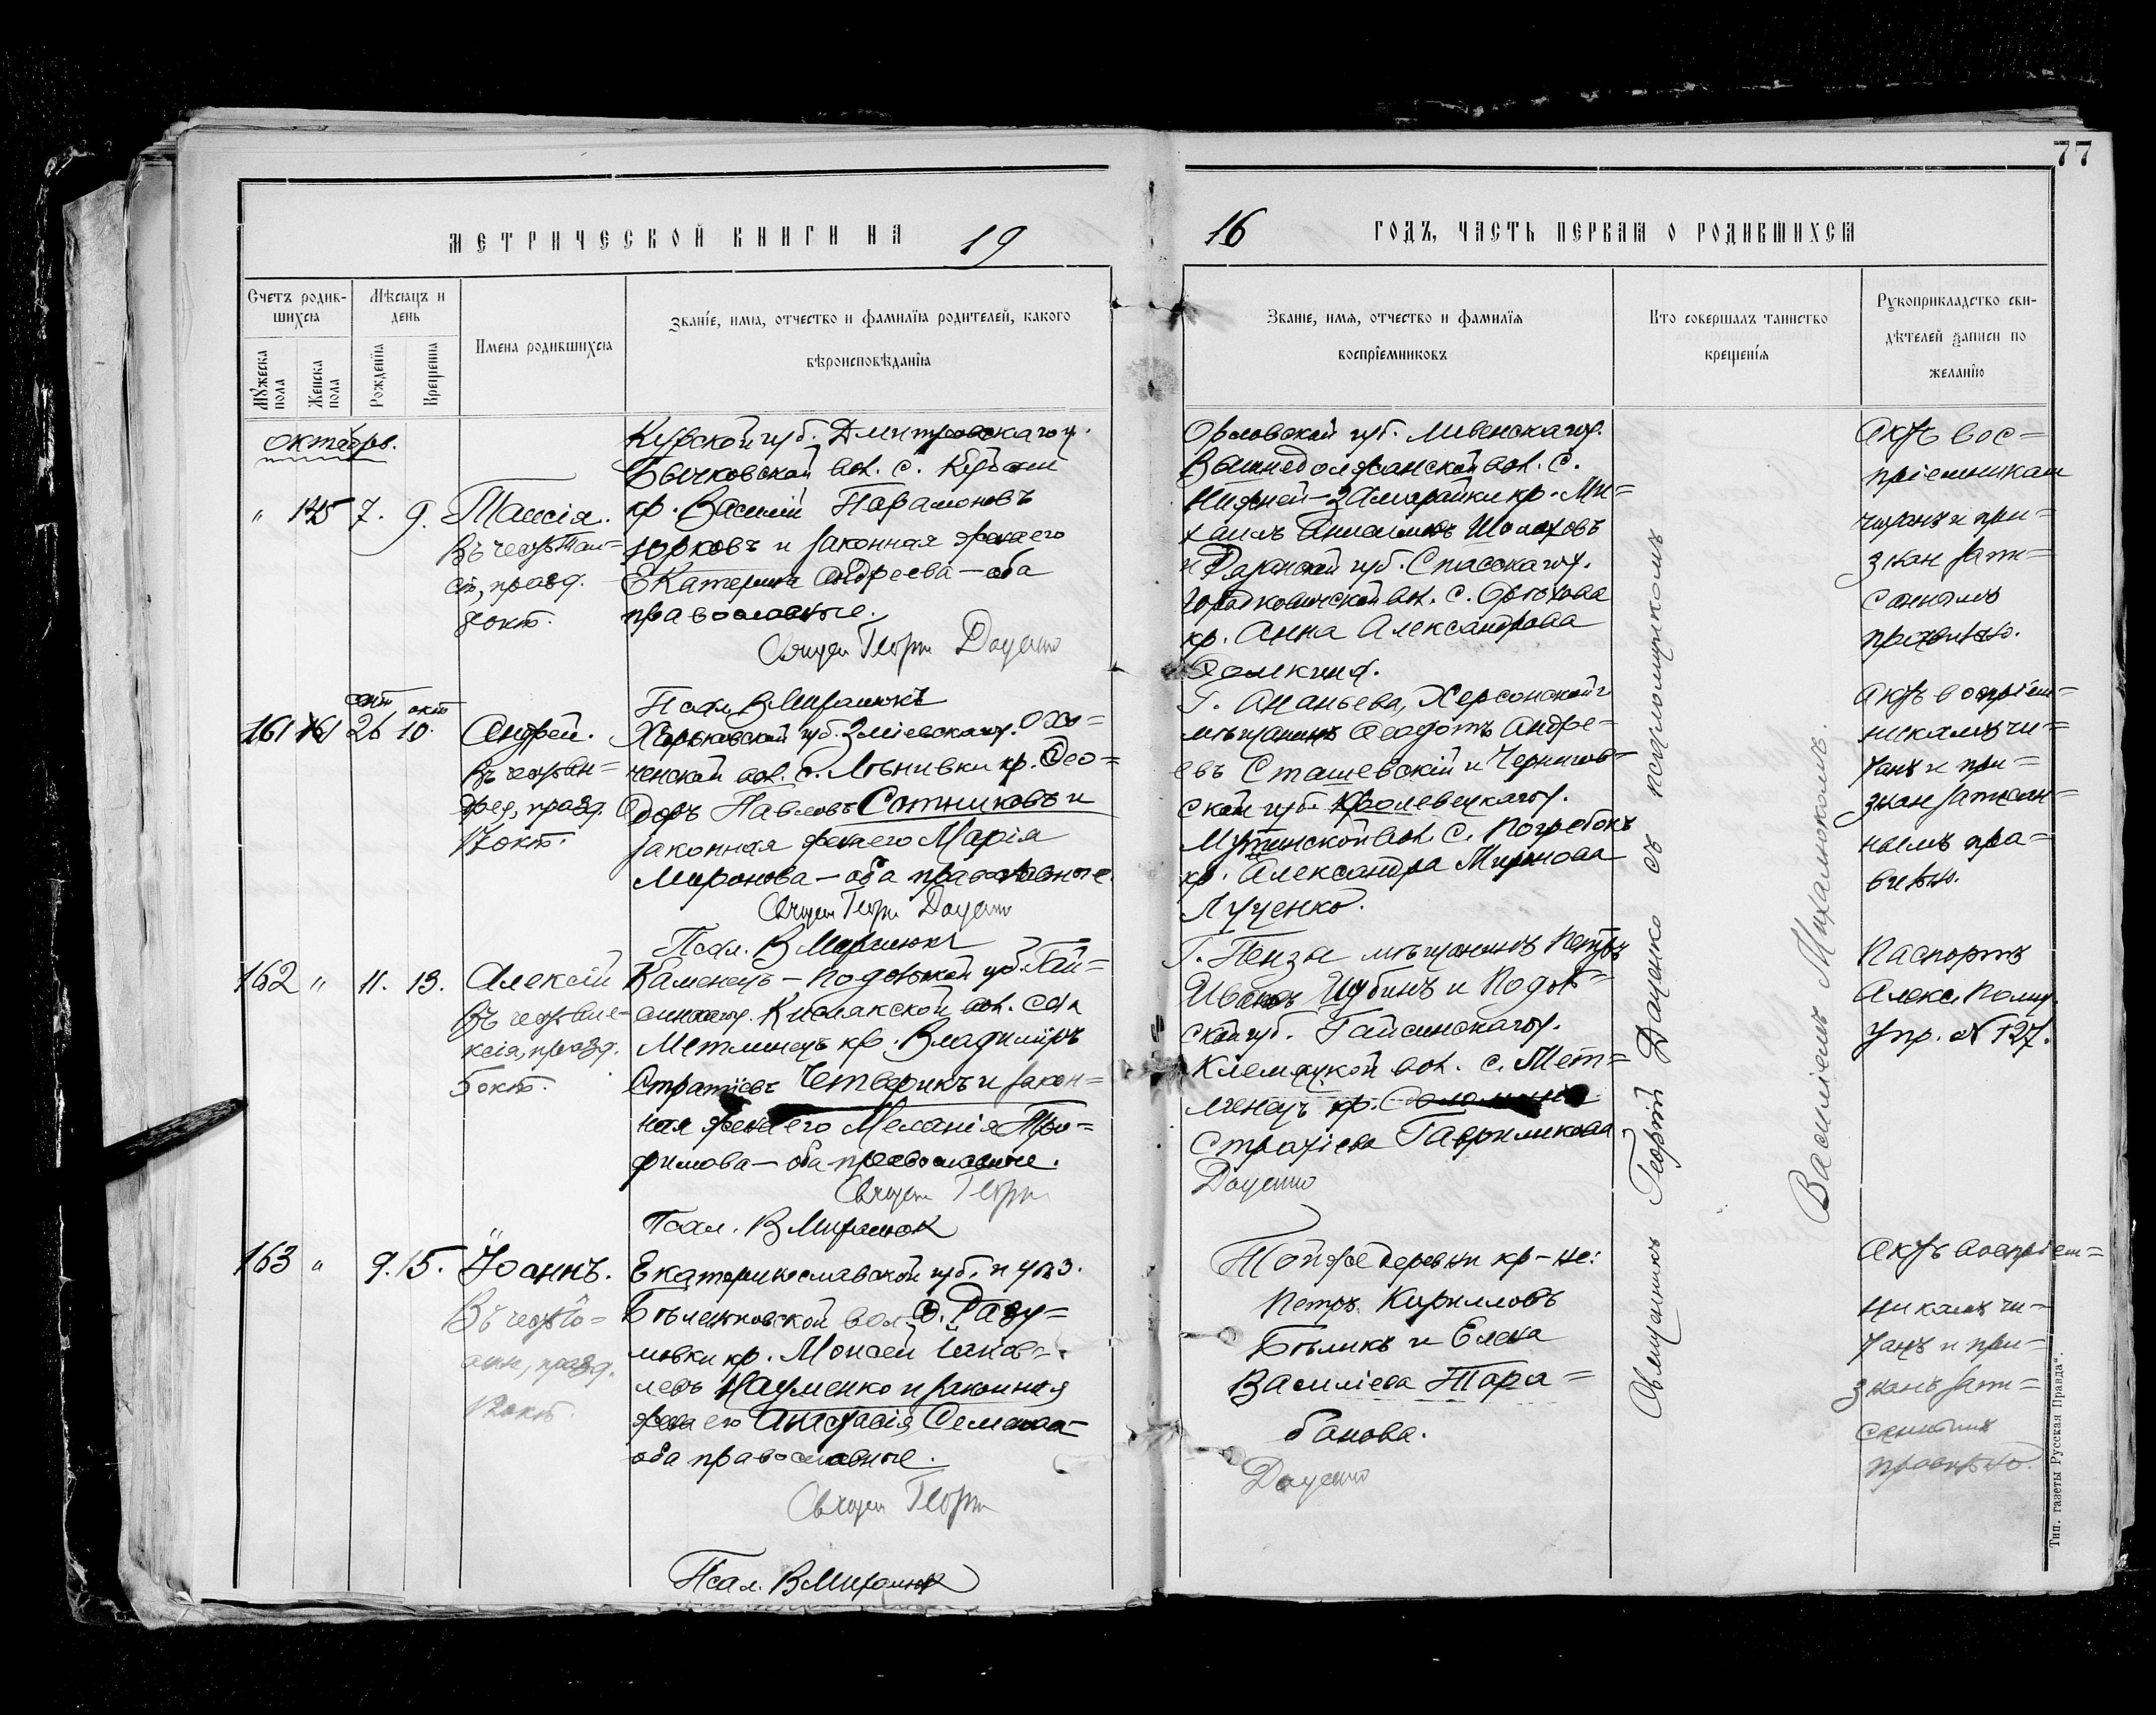 77
МЕТРИЧЕСКОЙ КНИГИ НА 19
16 ГОДЪ, ЧАСТЬ ПЕРВАЯ О РОДИВШИХСЯ
Счетъ родив-
шихся
Мужеска
пола
Женска
пола
Мѣсяцъ и
день
Рожденія
Крещенія
Имена родившихся
Званіе, имя, отчество и фамилія родителей, какого
вѣроисповѣданія
Званіе, имя, отчество и фамилія
воспріемниковъ
Кто совершалъ таинство
крещенія
Рукоприкладство сви-
дѣтелей записи по
желанію
октябрь.
" 145 7. 9. Таисія.
Въ честь Таи-
сіи, празд.
8 окт.
Курской губ. Дмитровскаго у.
Бычковской вол. с.
кр. Василій Парамоновъ
Юрковъ и законная жена его
Екатерина Андреева — оба
православные.
Священ Георгій Даценко
Псал. В Михалюкъ
Орловской губ. Ливенскаго у.
Вышнедолжанской вол. с.
Нижней - кр. Ми-
хаилъ Шолоховъ
и Рязанской губ. Спасскаго у.
Городковичской вол. с. Орѣхова
кр. Анна Александрова
Фомкина.
Актъ вос-
пріемникам
читанъ и при-
знан запи-
саннымъ
правильно.
161 161 сент 26 окт 10. Андрей.
Въ честь Ан-
дрея, празд.
17 окт.
Харьковской губ. Зміевскаго у. Охо-
ченской вол. с. Лѣнивки кр. Ѳео-
доръ Павловъ Сотниковъ и
законная жена его Марія
Миронова — оба православные.
Священ Георгій Даценко
Псал. В Михалюкъ
Г. Ананьева, Херсонской г.
мѣщанинъ Ѳеодотъ Андре-
евъ Сташевскій и Чернигов-
ской губ. Кролевецкаго у.
Мутинской вол. с. Погребокъ
кр. Александра Миронова
Луценко.
Актъ воспріем-
никамъ чи-
танъ и при-
знан записан-
нымъ пра-
вильно.
162 " 11. 13. Алексій
Въ честь Але-
ксія, празд.
5 окт.
Каменецъ-Подольской губ. Гай-
синскаго у. Кибланской вол. села
Метлинецъ кр. Владиміръ
Стратіевъ Четверикъ и закон-
ная жена его Меланія Тро-
фимова — оба православные.
Священ Георгій
Псал. В Михалюк
Г. Пензы мѣщанинъ Петръ
Ивановъ Шубинъ и Подоль-
ской губ. Гайсинскаго у.
вол. с. Мет-
линецъ кр. Соломонія
Стратіева Гаврилюкова
Даценко
Паспортъ
Алекс. Полиц.
Упр. № 127.
163 " 9. 15. Іоаннъ.
Въ честь Іо-
анн, празд.
12 окт.
Екатеринославской губ. и уѣз.
Бѣленковской вол. д. Разу-
мовки кр. Моисей Іаков-
левъ Науменко и законная
жена его Анастасія Семенова
оба православные.
Священ Георгій
Псал. В Михалюк
Той же деревни кр-не:
Петръ Кирилловъ
Бѣликъ и Елена
Василіева Тара-
банова.
Даценко
Актъ воспріем-
никамъ чи-
танъ и при-
знанъ запи-
саннымъ
правильно.
Священникъ Георгій Даценко съ псаломщикомъ
Василіемъ Михалюкомъ.
Тип. газеты Русская Правда“.